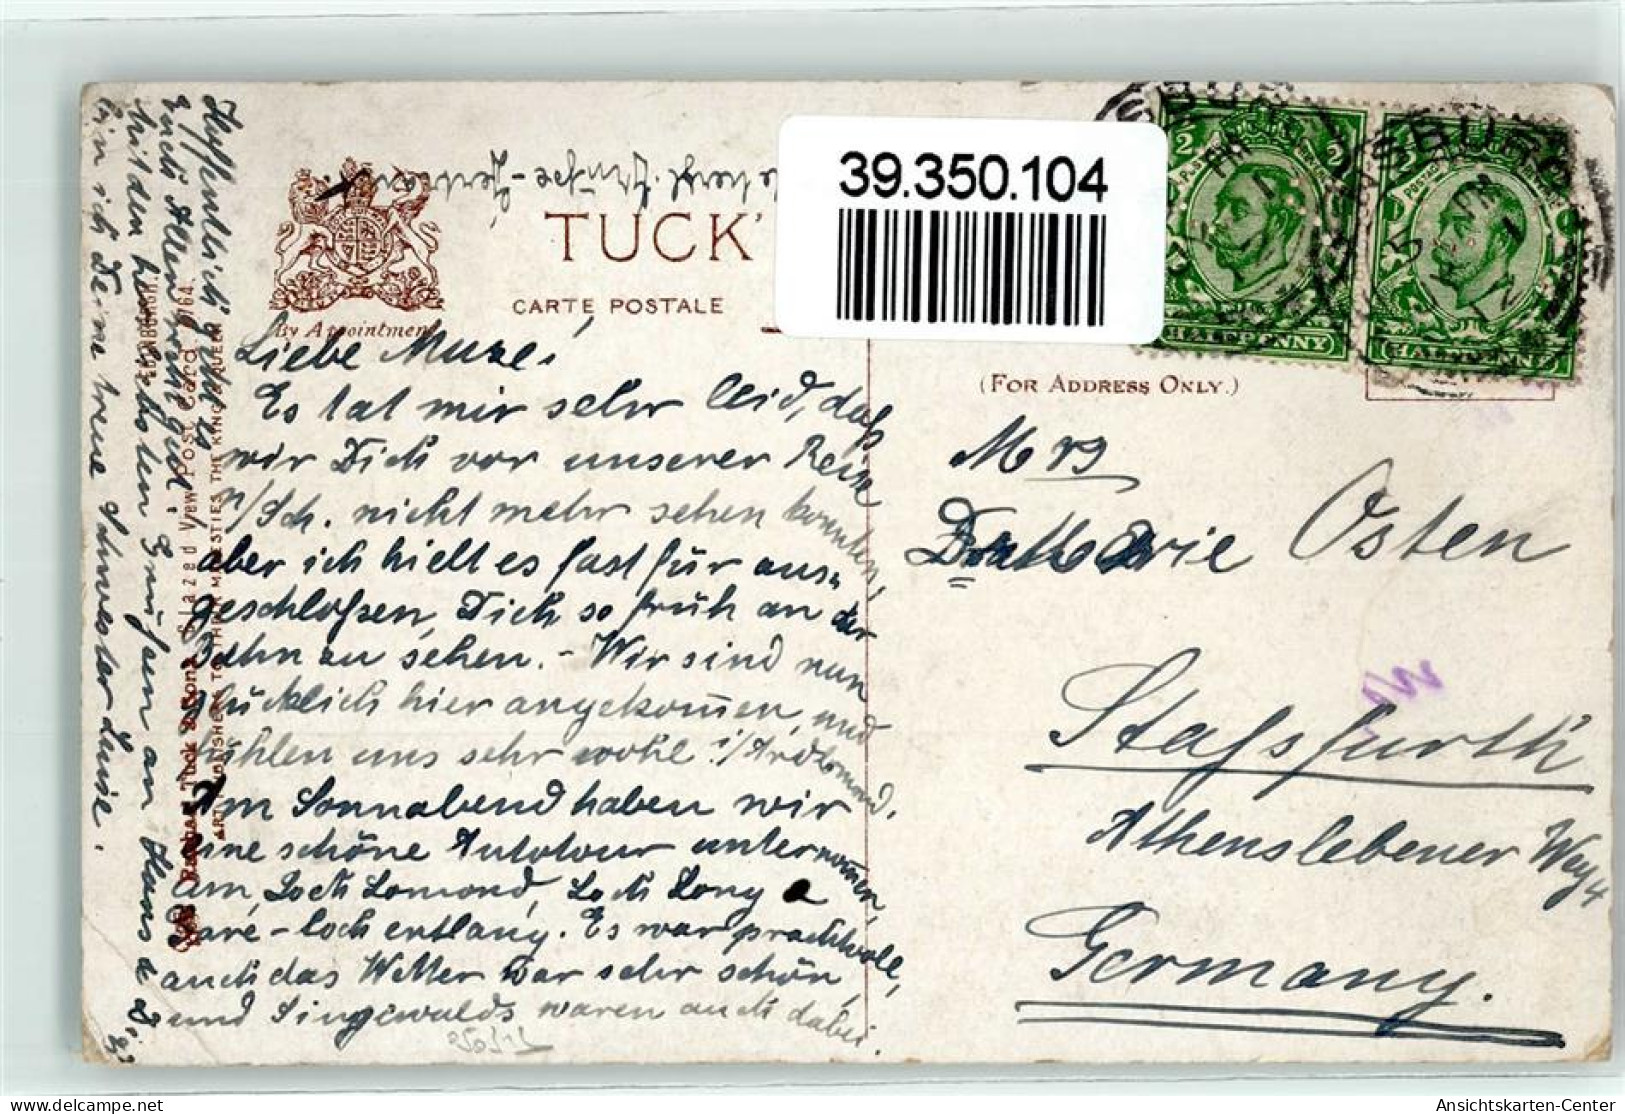 39.350.104
TUCK'
CARTE POSTALE
By Appointment
(FOR ADDRESS ONLY.)
HALFPENNY
HALFPENNY
Liebe Muze!
Es tat mir sehr leid, daß
wir Dich vor unserer Reise
n/Sch. nicht mehr sehen konnten,
aber ich hielt es fast für aus-
geschloßen, Dich so früh an der
Bahn zu sehen. - Wir sind nun
glücklich hier angekom̄en, und
fühlen uns sehr wohl i/Ardlomond.
Am Sonnabend haben wir
eine schöne Autotour unternom̄en,
am Loch Lomond, Loch Long &
Gare-loch entlang. Es war prachtvoll,
auch das Wetter war sehr schön,
und Singewalds waren auch dabei.
Hoffentlich geht es
Euch Allen recht gut!
Mit den herzlichsten Grüßen an Hans & Dich
bin ich Deine treue Schwester Luise.
Raphael Tuck & Sons "Glazed View" Post Card 9164
ART PUBLISHERS TO THEIR MAJESTIES THE KING & QUEEN
Mrs
Osten
Stassfurth
Athenslebener Weg 4
Germany.
Ansichtskarten-Center